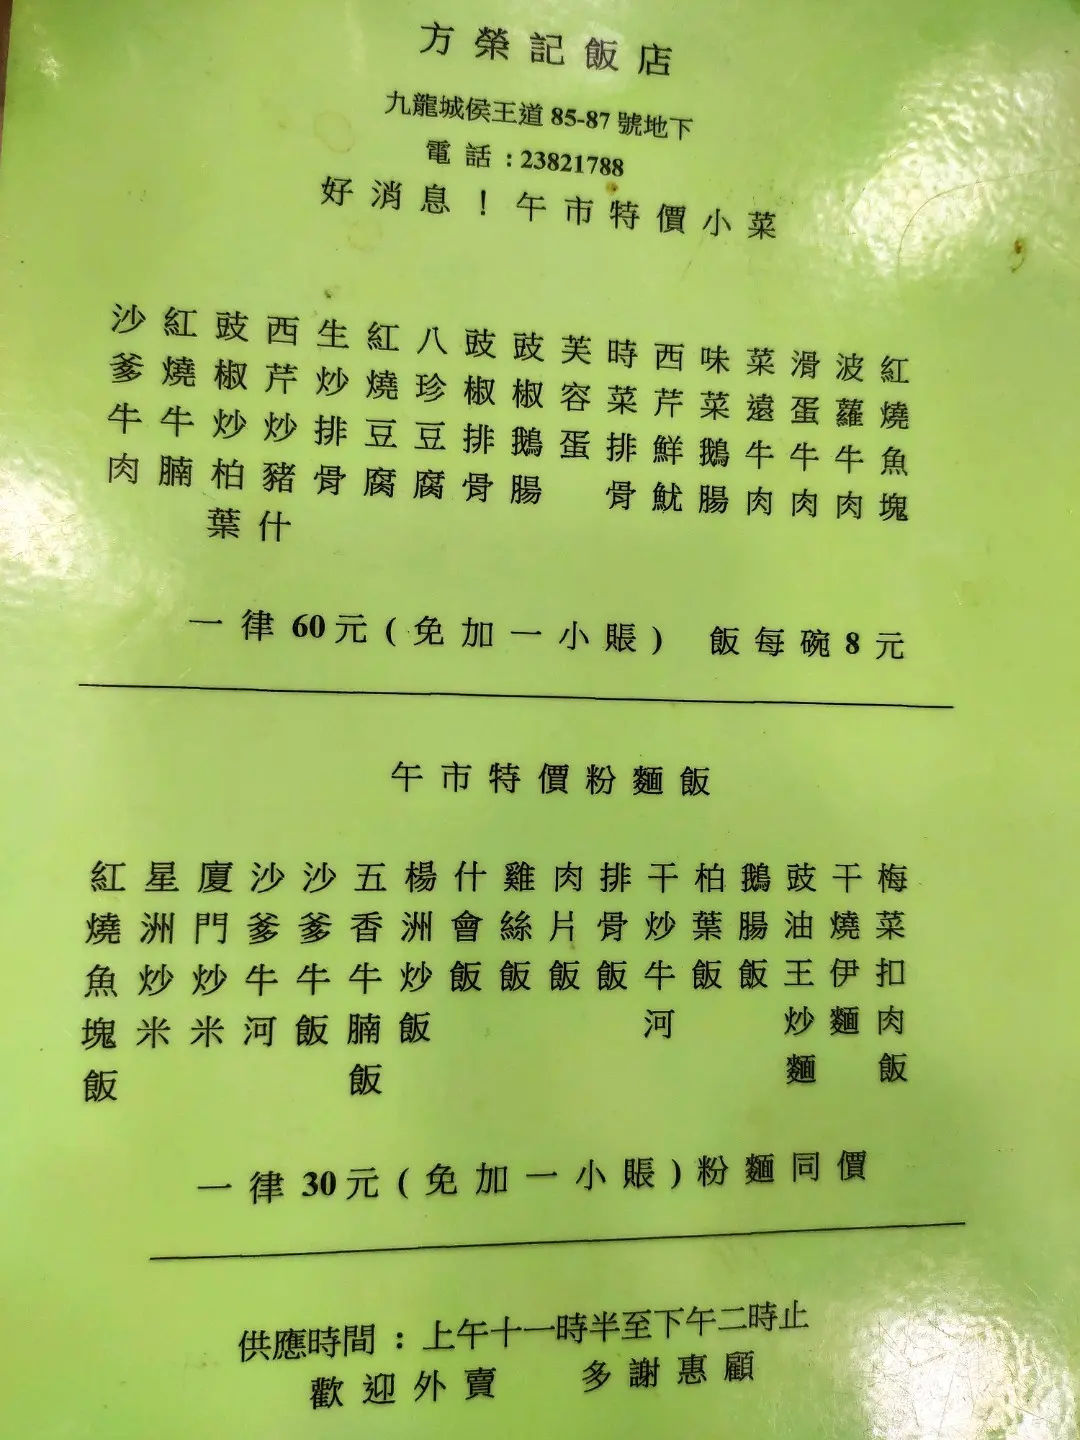 方榮記飯店
九龍城侯王道 85-87 號地下
電話 : 23821788
好消息！午市特價小菜
紅燒魚塊
波蘿牛肉
滑蛋牛肉
菜遠牛肉
味菜鵝腸
西芹鮮魷
時菜排骨
芙容蛋
豉椒鵝腸
豉椒排骨
八珍豆腐
紅燒豆腐
生炒排骨
西芹炒豬什
豉椒炒柏葉
紅燒牛腩
沙爹牛肉
一律 60 元 ( 免加一小賬 ) 飯每碗 8 元
午市特價粉麵飯
梅菜扣肉飯
干燒伊麵
豉油王炒麵
鵝腸飯
柏葉飯
干炒牛河
排骨飯
肉片飯
雞絲飯
什會飯
楊洲炒飯
五香牛腩飯
沙爹牛飯
沙爹牛河
廈門炒米
星洲炒米
紅燒魚塊飯
一律 30 元 ( 免加一小賬 ) 粉麵同價
供應時間：上午十一時半至下午二時止
歡迎外賣 多謝惠顧